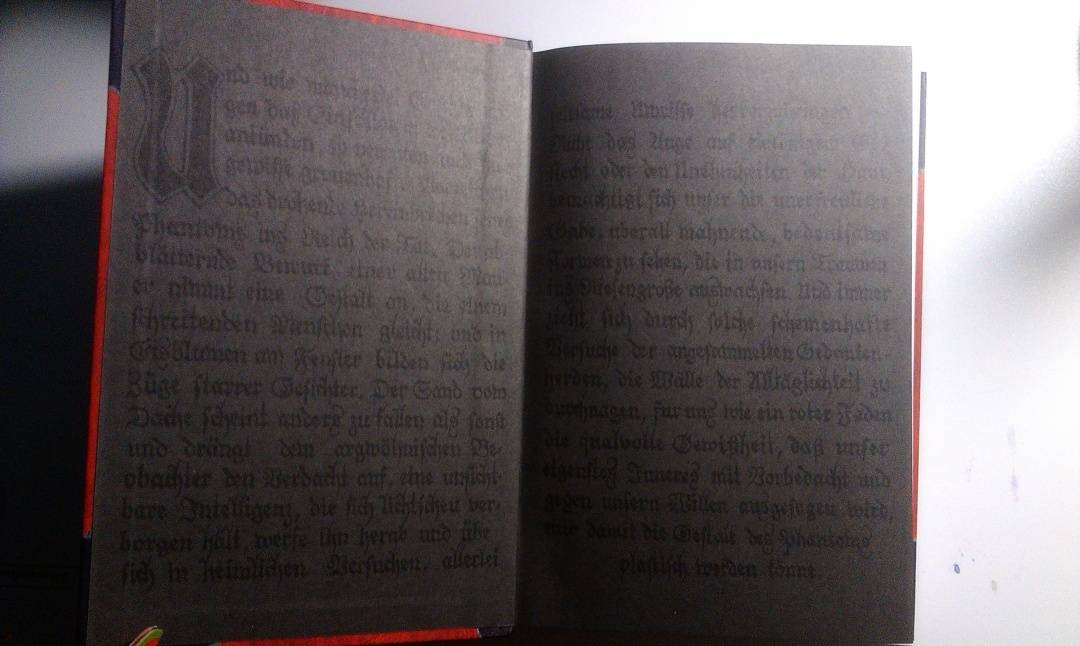 Und wie
gen das Einsetzen
ankünden, so verraten auch
gewisse grauenhafte Vorzeichen
das drohende Hereinbrechen jenes
Phantoms ins Reich der Tat. Der ab-
blätternde Bewurf einer alten Mau-
er nimmt eine Gestalt an, die einem
schreitenden Menschen gleicht; und in
Eisblumen am Fenster bilden sich die
Züge starrer Gesichter. Der Sand vom
Dache scheint anders zu fallen als sonst
und drängt dem argwöhnischen Be-
obachter den Verdacht auf, eine unsicht-
bare Intelligenz, die sich lichtscheu ver-
borgen hält, werfe ihn herab und übe
sich in heimlichen Versuchen, allerlei
seltsame Umrisse hervorzubringen
Ruht das Auge auf eintönigem
flecht oder den Unebenheiten der Haut,
bemächtigt sich unser die unerfreuliche
Gabe, überall mahnende, bedeutsame
Formen zu sehen, die in unsern Träumen
ins Riesengroße auswachsen. Und immer
zieht sich durch solche schemenhafte
Versuche der angesammelten Gedanken-
herden, die Wälle der Alltäglichkeit zu
durchnagen, für uns wie ein roter Faden
die qualvolle Gewißheit, daß unser
eigenstes Inneres mit Vorbedacht und
gegen unsern Willen ausgesogen wird,
nur damit die Gestalt des Phantoms
plastisch werden könne.